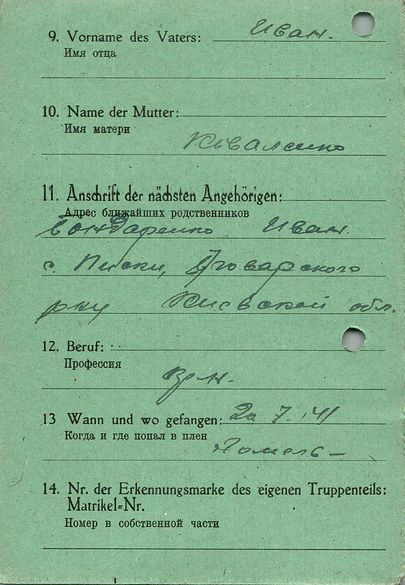 9. Vorname des Vaters: Иван.
Имя отца
10. Name der Mutter:
Имя матери
Коваленко
11. Anschrift der nächsten Angehörigen:
Адрес ближайших родственников
Бондаренко Иван.
с. Писки, Броварского
р-ну Киевской обл.
12. Beruf:
Профессия
13 Wann und wo gefangen: 20 7. 41
Когда и где попал в плен
Гомель –
14. Nr. der Erkennungsmarke des eigenen Truppenteils:
Matrikel=Nr.
Номер в собственной части